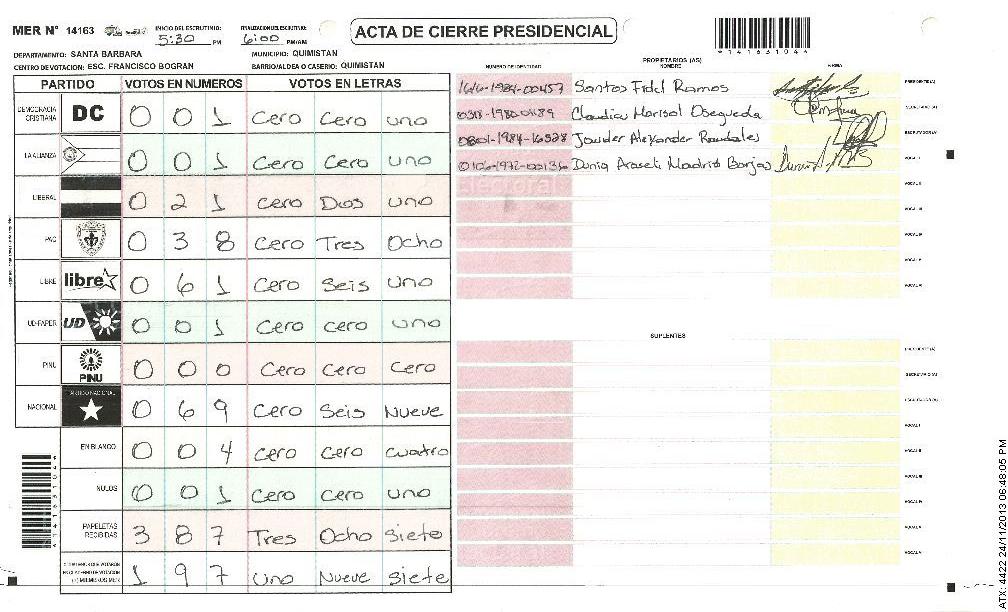 MER N° 14163 INICIO DEL ESCRUTINIO: 5:30 PM FINALIZACION ESCRUTINIO: 6:00 PM/AM
ACTA DE CIERRE PRESIDENCIAL
DEPARTAMENTO: SANTA BARBARA MUNICIPIO: QUIMISTAN
CENTRO DE VOTACION: ESC. FRANCISCO BOGRAN BARRIO/ALDEA O CASERIO: QUIMISTAN
1 4 1 6 3 1 0 4 4
PARTIDO VOTOS EN NUMEROS VOTOS EN LETRAS
DEMOCRACIA CRISTIANA DC 0 0 1 Cero Cero uno
LA ALIANZA 0 0 1 Cero Cero uno
LIBERAL 0 2 1 Cero Dos uno
PAC 0 3 8 Cero Tres Ocho
LIBRE libre 0 6 1 Cero Seis uno
UD-FAPER UD 0 0 1 Cero cero uno
PINU PINU 0 0 0 Cero Cero Cero
NACIONAL PARTIDO NACIONAL 0 6 9 Cero Seis Nueve
EN BLANCO 0 0 4 Cero Cero cuatro
NULOS 0 0 1 Cero Cero uno
PAPELETAS RECIBIDAS 3 8 7 Tres Ocho Siete
1 9 7 Uno Nueve Siete
PROPIETARIOS (AS)
NUMERO DE IDENTIDAD NOMBRE FIRMA
Santos Fidel Ramos PRESIDENTE(A)
Claudia Marisol Osegueda SECRETARIO(A)
0801-1984-16528 Alexander ESCRUTADOR(A)
Madrid Borjas VOCAL I
Electoral
VOCAL II
VOCAL III
VOCAL IV
VOCAL V
VOCAL VI
SUPLENTES
PRESIDENTE(A)
SECRETARIO(A)
ESCRUTADOR(A)
VOCAL I
VOCAL II
VOCAL III
VOCAL IV
VOCAL V
VOCAL VI
ATX: 4422 24/11/2013 06:48:05 PM